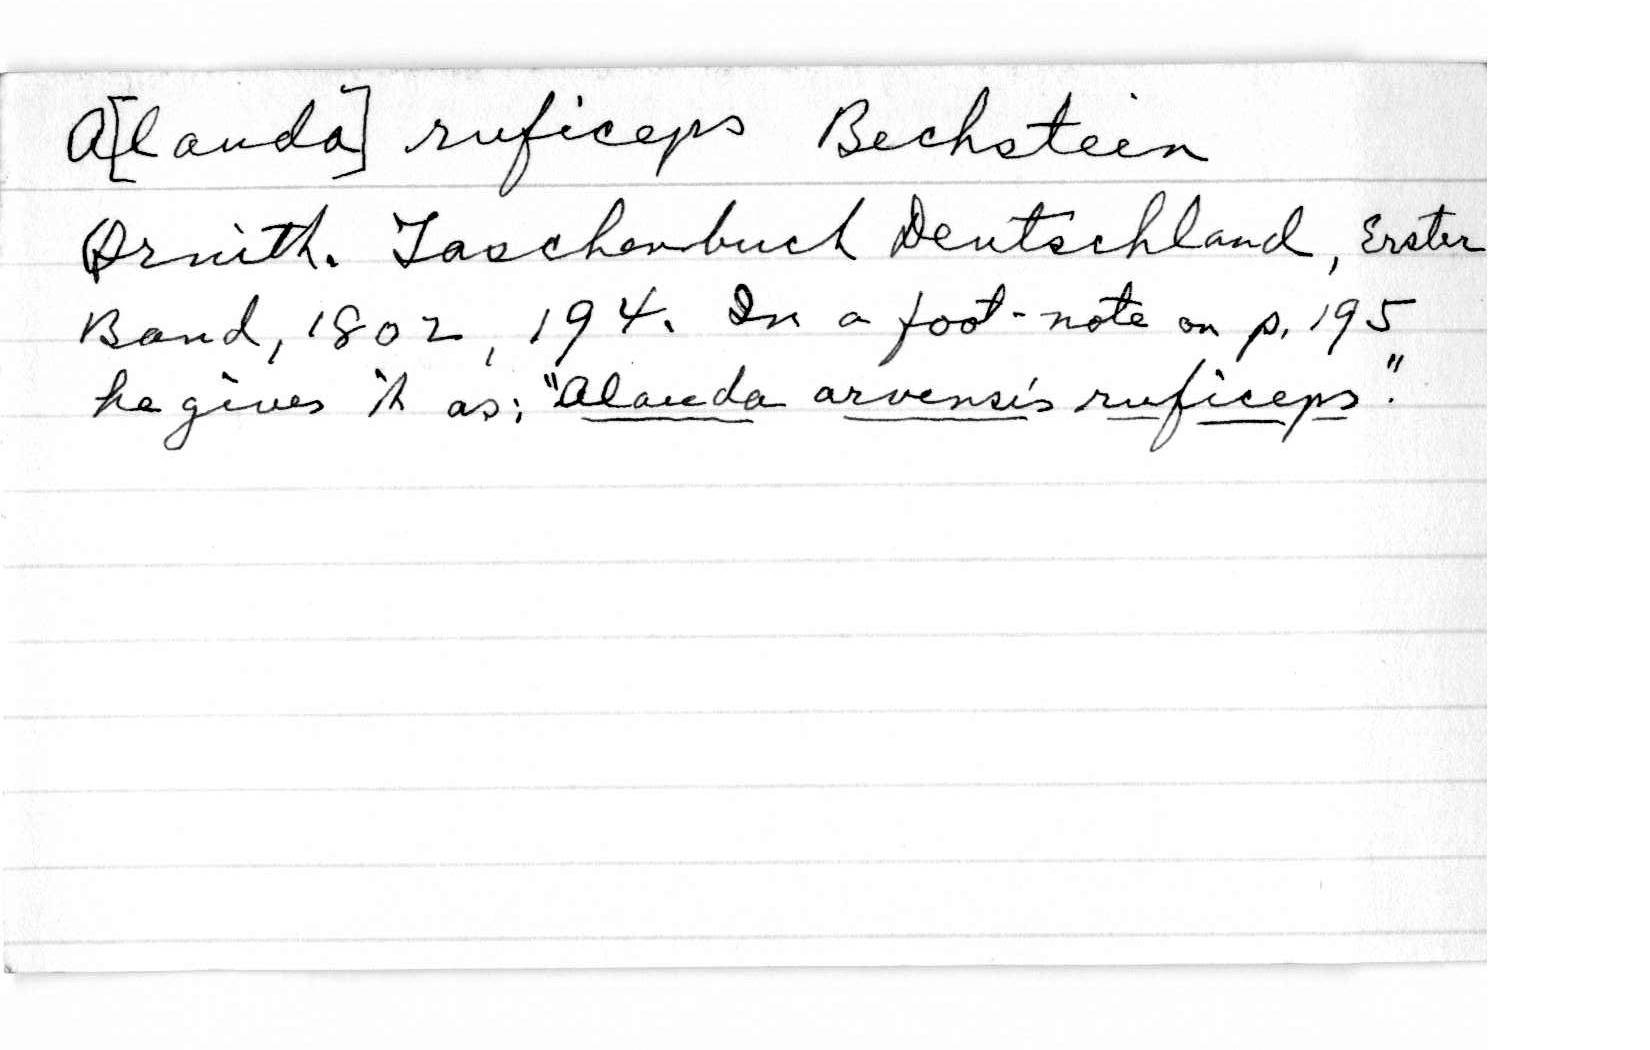 A[lauda] ruficeps Bechstein
Ornith. Taschenbuch Deutschland, Erster
Band, 1802, 194. In a foot-note on p. 195
he gives it as: "Alauda arvensis ruficeps."